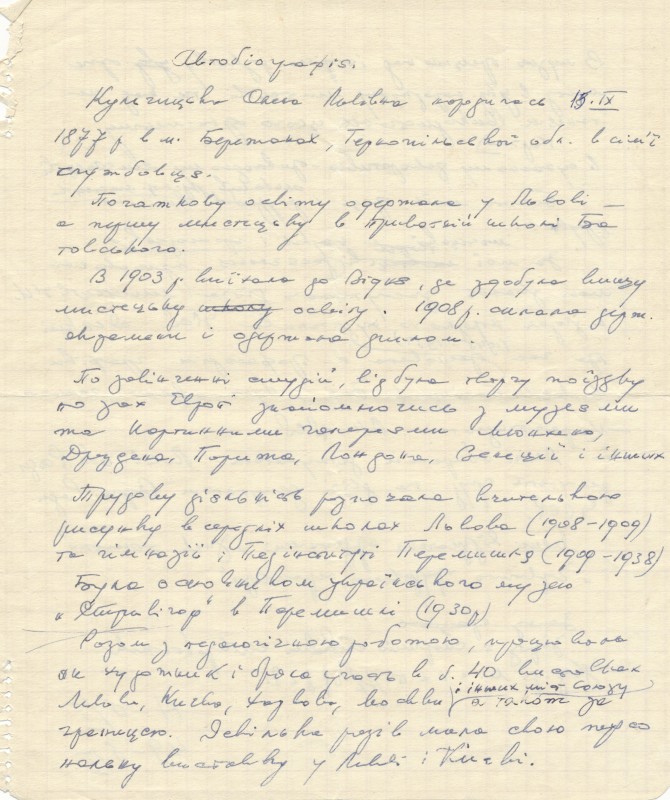 Автобіографія.
Кульчицька Олена Львівна народилась 15.IX
1877 р в м. Бережанах, Тернопільської обл. в сім'ї
службовця.
Початкову освіту одержала у Львові —
а першу мистецьку в приватній школі Ба
товського.
В 1903 р. виїхала до Відня, де здобула вищу
мистецьку школу освіту. 1908 р. склала держ.
екзамени і одержала диплом.
По закінченні студій, відбула творчу поїздку
по зах Европі знайомлючись з музеями
та картинними галереями Мюнхена,
Дрездена, Парижа, Лондона, Венеції і інших
Трудову діяльність розпочала вчителькою
рисунку в середніх школах Львова (1908-1909)
та гімназії і Педінституті Перемишля (1909-1938)
Була основником українського музею
„Стривігор" в Перемишлі (1930р)
Разом з педагогічною роботою, працювала
як художник і брала участь в б. 40 виставках
Львова, Києва, Харкова, Москви і інших міст Союзу а також за
границею. Декілька разів мала свою персо
нальну виставку у Львові і Києві.